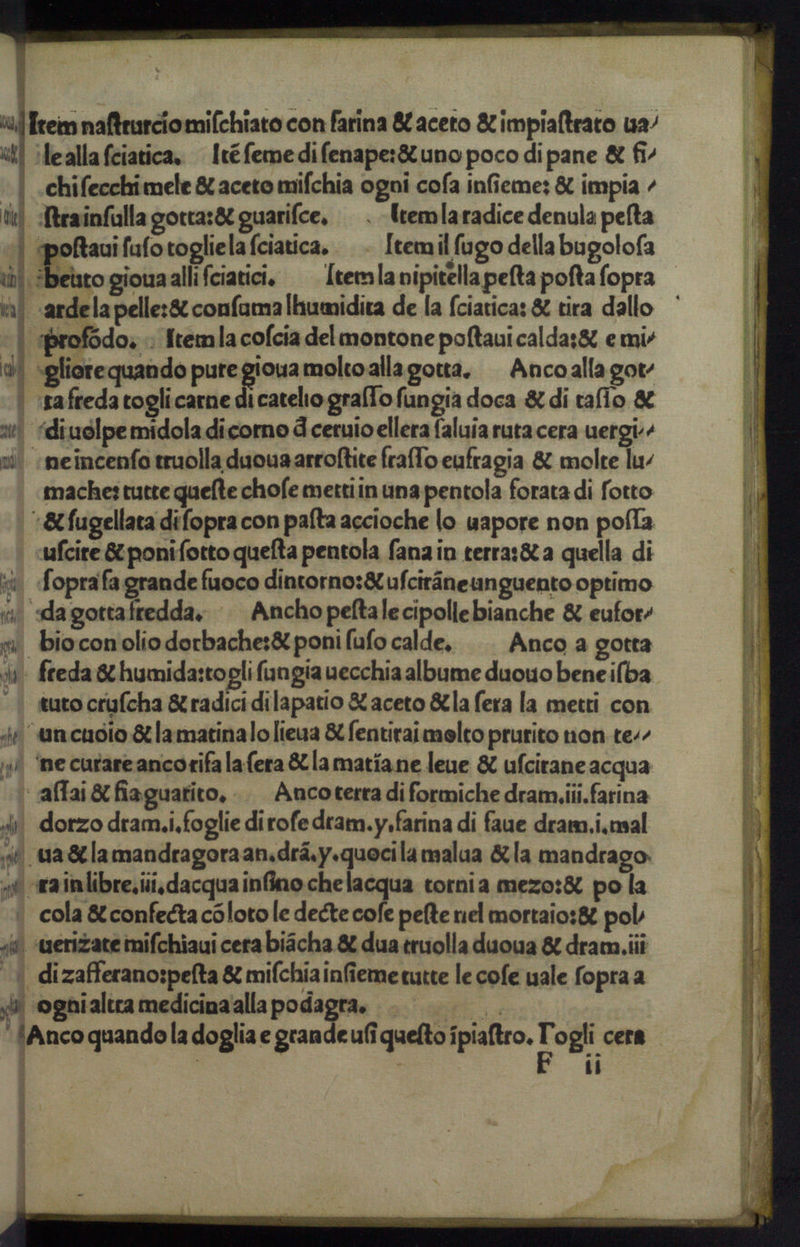 Item naſteurcio miſchiato con farina & aceto & impiaſtrato ua/
le alla ſciatica. Ité ſeme di ſenape:& uno poco di pane & fi/
chi ſecchi mele & aceto miſchia ogni coſa inſieme: & impia /
ſtra inſulla gotta:& guariſce. Item la radice denula peſta
poſtaui ſuſo toglie la ſciatica. Item il ſugo della bugoloſa
beuto gioua alli ſciatici. Item la nipitella peſta poſta ſopra
arde la pelle:& conſuma lhumidita de la ſciatica: & tira dallo
profódo. Item la coſcia del montone poſtaui calda:& e mi/
gliore quando pure gioua molto alla gotta. Anco alla got/
ta freda togli carne di catelio graſſo fungia doca & di taſſo &
di uolpe midola di corno d ceruio ellera ſaluia ruta cera uergi/
ne incenſo truolla duoua arroſtite fraſſo eufragia & molte lu/
mache: tutte queſte choſe metti in una pentola forata di ſotto
& ſugellata di ſopra con paſta accioche lo uapore non poſſa
uſcire & poni ſotto queſta pentola ſana in terra:& a quella di
ſopra fa grande fuoco dintorno:& uſciráne unguento optimo
da gotta fredda. Ancho peſta le cipolle bianche & eufor/
bio con olio dorbache:& poni ſuſo calde. Anco a gotta
freda & humida:togli fungia uecchia albume duouo bene iſba
tuto cruſcha & radici di lapatio & aceto & la ſera la metti con
un cuoio & la matina lo lieua & ſentirai molto prurito non te//
ne curare anco rifa la ſera & la matía ne leue & uſcirane acqua
aſſai & fia guarito. Anco terra di formiche dram.iii.farina
dorzo dram.i.foglie di roſe dram.y.farina di faue dram.i.mal
ua & la mandragora an.drá.y.quoci la malua & la mandrago
ra in libre.iii.dacqua inſino che lacqua torni a mezo:& po la
cola & confecta có loto le decte coſe peſte nel mortaio:& pol/
uerizate miſchiaui cera biácha & dua truolla duoua & dram.iii
di zafferano:peſta & miſchia inſieme tutte le coſe uale ſopra a
ogni altra medicina alla podagra.
Anco quando la doglia e grande uſi queſto ípiaſtro. Togli cera
F ii